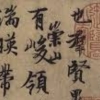 也羣賢畢
有崇山峻領
湍暎帶